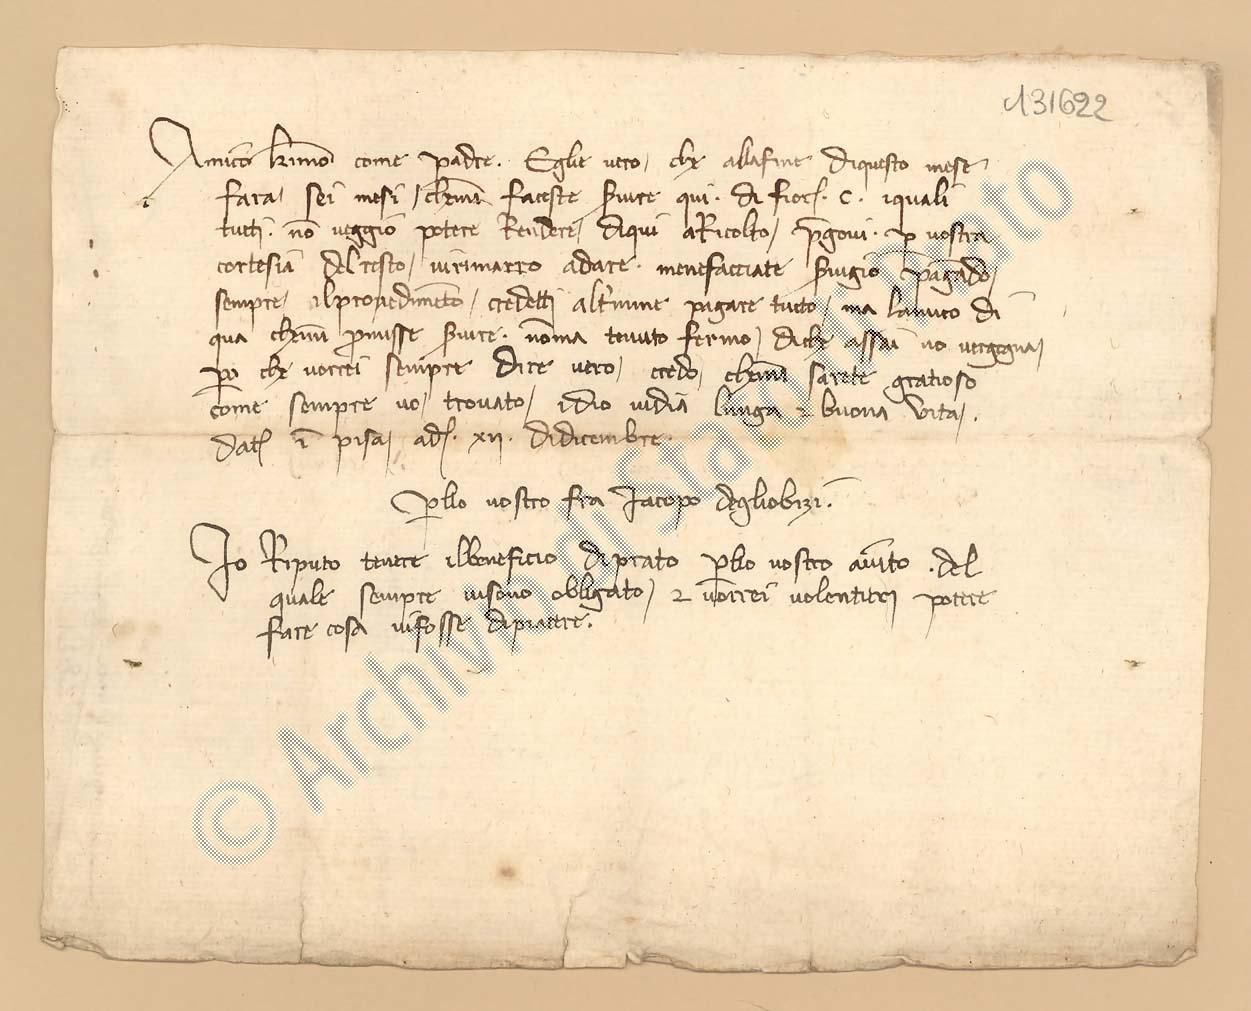 131622
Amico krimo come padre. Eglie vero, che allafine diquesto mese
fara sei mesi, chemi faceste servire qui. di fior. c. iquali
tutti. no veggio potere Rendere, diqui aRicolto, pregovi. p vostra
cortesia delresto, virimarro adare. menefacciate servigio pagado,
sempre, ilprovedimeto, credetti altermine pagare tutto, ma lamico di
qua chemi promisse servire. noma tenuto fermo, diche assai no vergogna,
po che vorrei sempre dire vero, credo, chemi sarete gratioso
come sempre vo trovato, idio vidia lunga & buona vita.
Dat. i pisa, ad. xii. didicembre.
Pello vostro fra Jacopo degliobizi.
Io Riputo tenere ilbeneficio diprato pello vostro aiuto. del
quale sempre visono obbligato, & vorrei volentieri potere
fare cosa vifosse dipiacere.
© Archivio di Stato di Prato